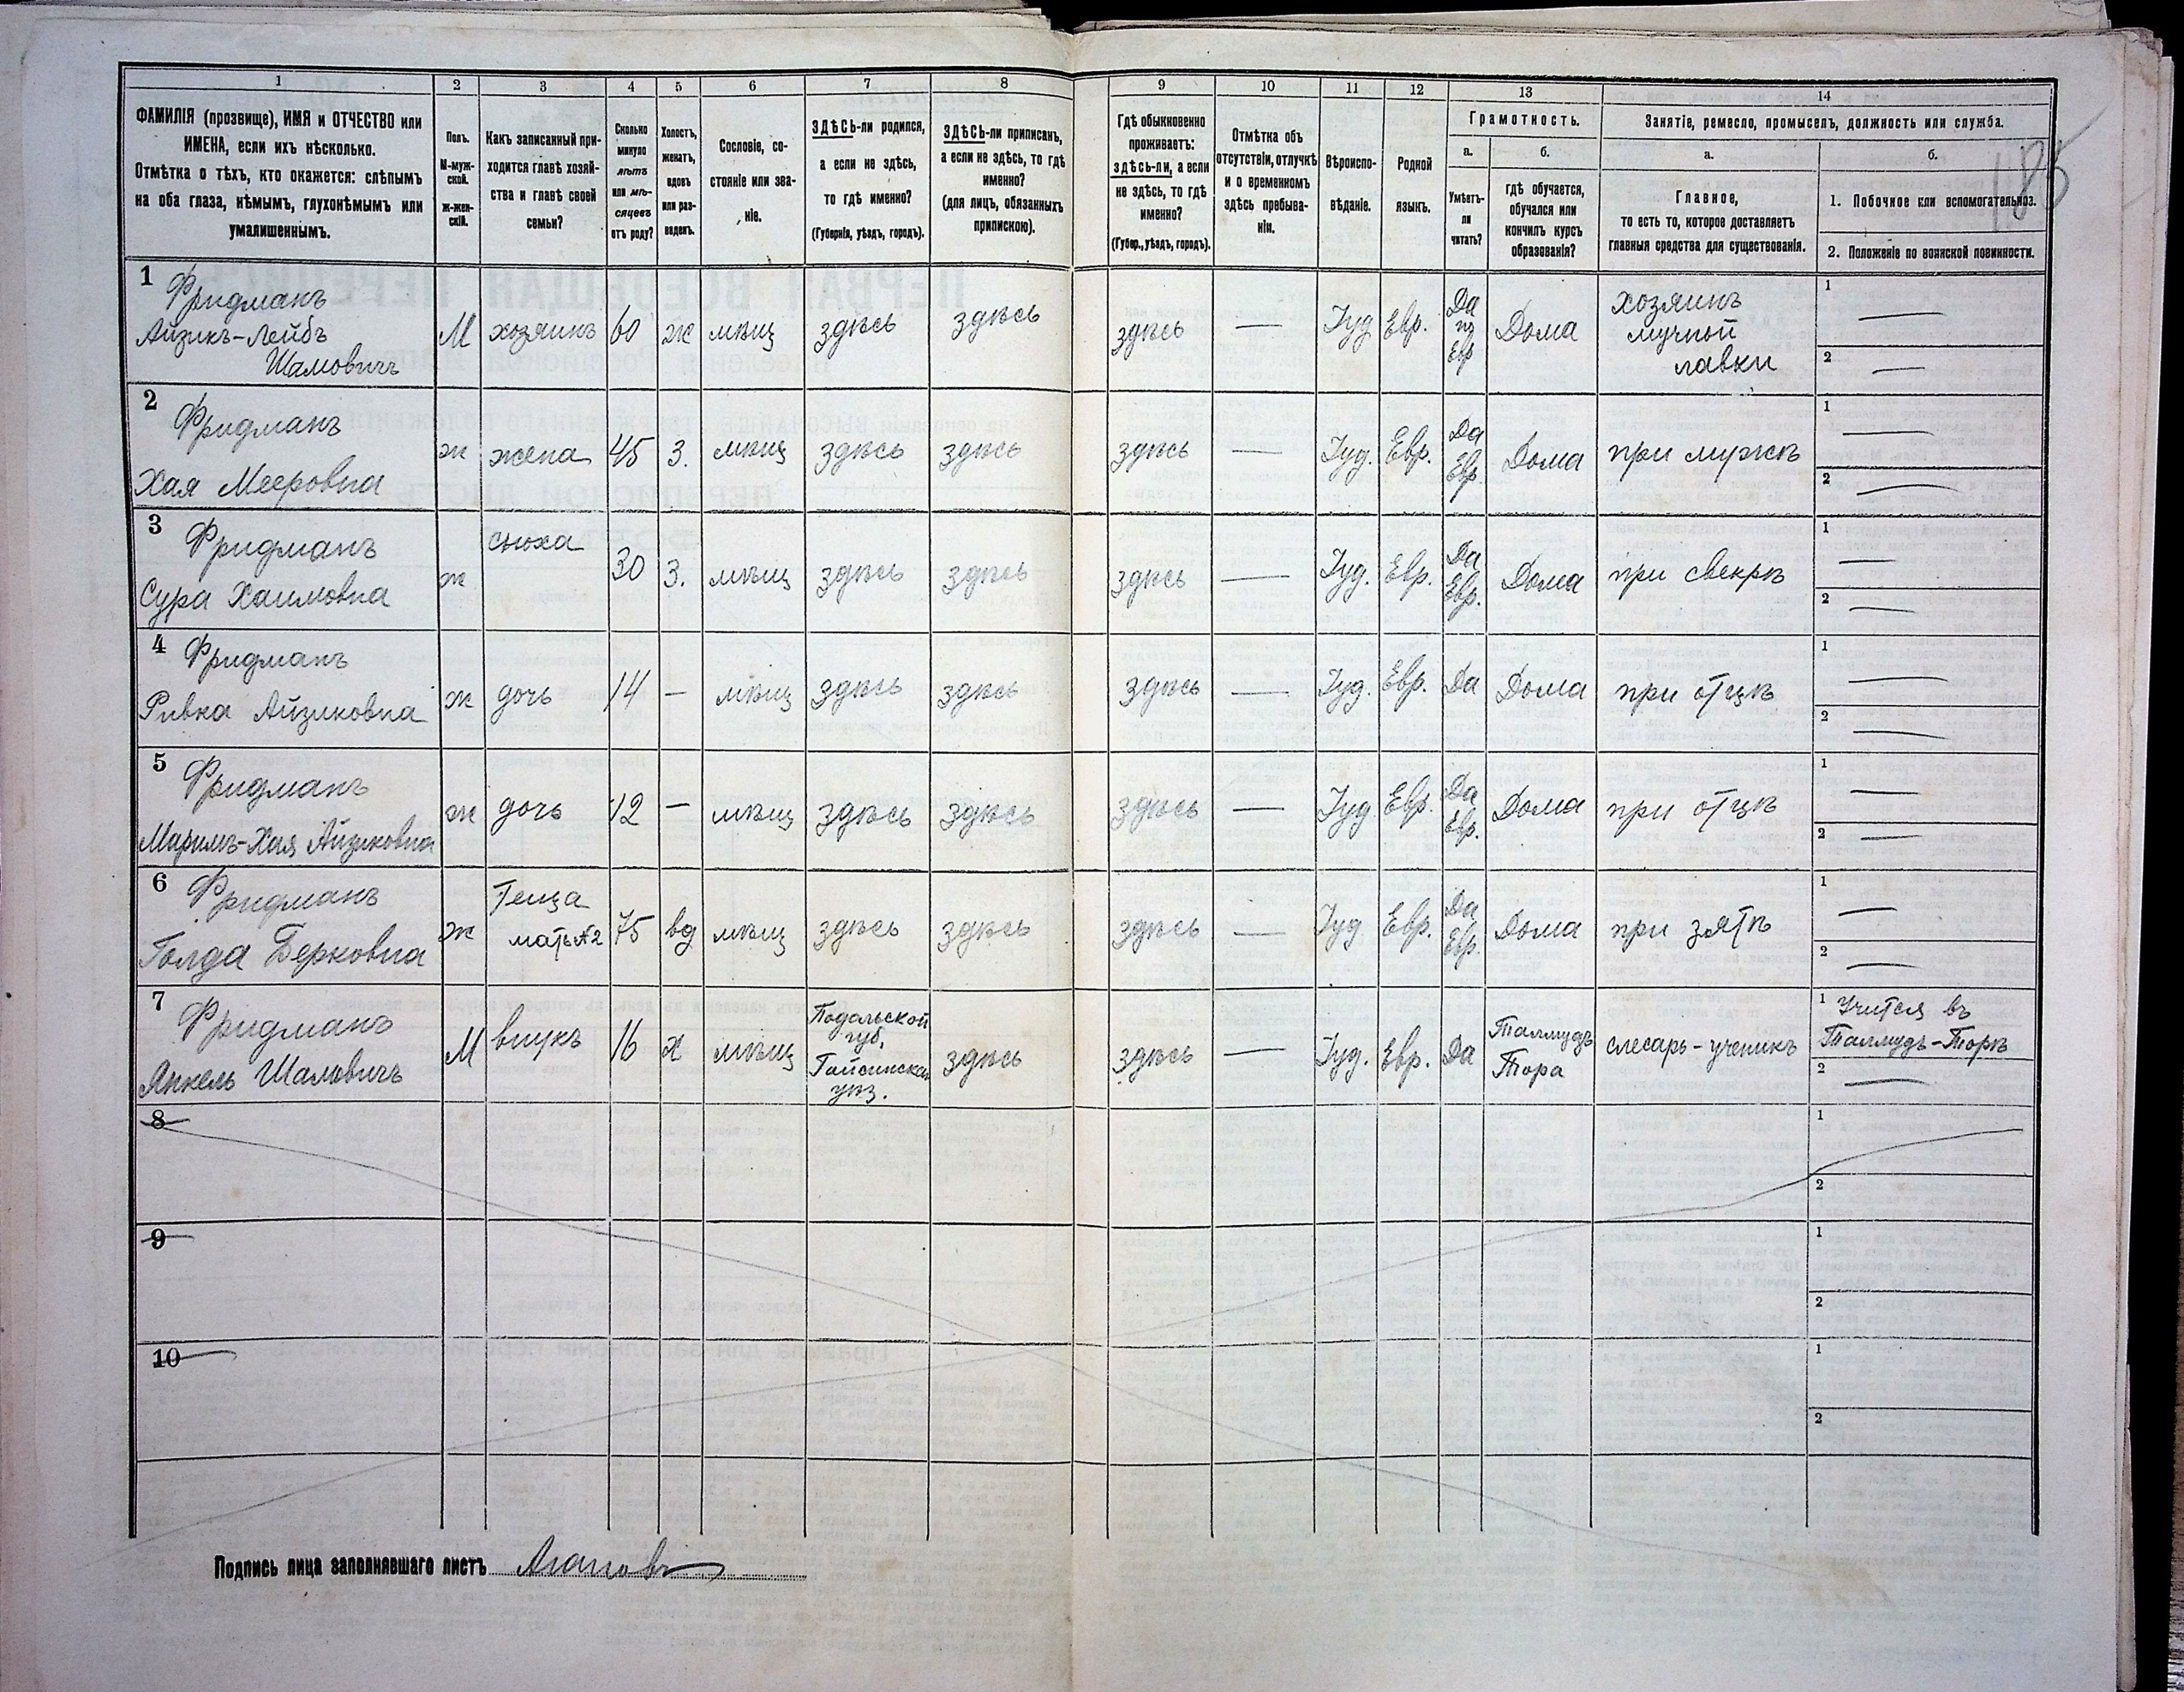 1 2 3 4 5 6 7 8 9 10 11 12 13 14
ФАМИЛІЯ (прозвище), ИМЯ и ОТЧЕСТВО или
ИМЕНА, если ихъ нѣсколько.
Отмѣтка о тѣхъ, кто окажется: слѣпымъ
на оба глаза, нѣмымъ, глухонѣмымъ или
умалишеннымъ.
Полъ.
М-муж-
ской.
Ж-жен-
скій.
Какъ записанный при-
ходится главѣ хозяй-
ства и главѣ своей
семьи?
Сколько
минуло
лѣтъ
или мѣ-
сяцевъ
отъ роду?
Холостъ,
женатъ,
вдовъ
или раз-
веденъ.
Сословіе, со-
стояніе или зва-
ніе.
ЗДѢСЬ-ли родился,
а если не здѣсь,
то гдѣ именно?
(Губернія, уѣздъ, городъ).
ЗДѢСЬ-ли приписанъ,
а если не здѣсь, то гдѣ
именно?
(для лицъ, обязанныхъ
припискою).
Гдѣ обыкновенно
проживаетъ:
здѣсь-ли, а если
не здѣсь, то гдѣ
именно?
(Губер., уѣздъ, городъ).
Отмѣтка объ
отсутствіи, отлучкѣ
и о временномъ
здѣсь пребыва-
ніи.
Вѣроиспо-
вѣданіе.
Родной
языкъ.
Грамотность.
а.
Умѣетъ-
ли
читать?
б.
гдѣ обучается,
обучался или
кончилъ курсъ
образованія?
Занятіе, ремесло, промыселъ, должность или служба.
а.
Главное,
то есть то, которое доставляетъ
главныя средства для существованія.
б.
1. Побочное или вспомогательное.
2. Положеніе по воинской повинности.
185
1
Фридманъ
Айзикъ-Лейбъ
Шамовичъ
М хозяинъ 60 ж мѣщ здѣсь здѣсь здѣсь — Іуд Евр.
Да
Евр
Дома
хозяинъ
мучной
лавки
1 —
2 —
2
Фридманъ
Хая Мееровна
ж жена 45 З. мѣщ здѣсь здѣсь здѣсь — Іуд. Евр.
Да
Евр.
Дома при мужѣ
1 —
2 —
3
Фридманъ
Сура Хаимовна
ж сноха 30 З. мѣщ здѣсь здѣсь здѣсь — Іуд. Евр.
Да
Евр.
Дома при свекрѣ
1 —
2 —
4
Фридманъ
Ривка Айзиковна
ж дочь 14 — мѣщ здѣсь здѣсь здѣсь — Іуд. Евр. Да Дома при отцѣ
1 —
2 —
5
Фридманъ
Маримъ-Хая Айзиковна
ж дочь 12 — мѣщ здѣсь здѣсь здѣсь — Іуд Евр.
Да
Евр.
Дома при отцѣ
1 —
2 —
6
Фридманъ
Голда Берковна
Ж
Теща
мать №2
75 вд мѣщ здѣсь здѣсь здѣсь — Іуд Евр.
Да
Евр.
Дома при зятѣ
1 —
2 —
7
Фридманъ
Янкель Шамовичъ
М внукъ 16 х мѣщ
Подольской
губ.
Гайсинскаго
уѣз.
здѣсь здѣсь — Іуд. Евр. Да
Талмудъ
Тора
слесарь-ученикъ
1 Учится въ
Талмудъ-Торѣ
2 —
8
1
2
9
1
2
10
1
2
Подпись лица заполнявшаго листъ Агаповъ